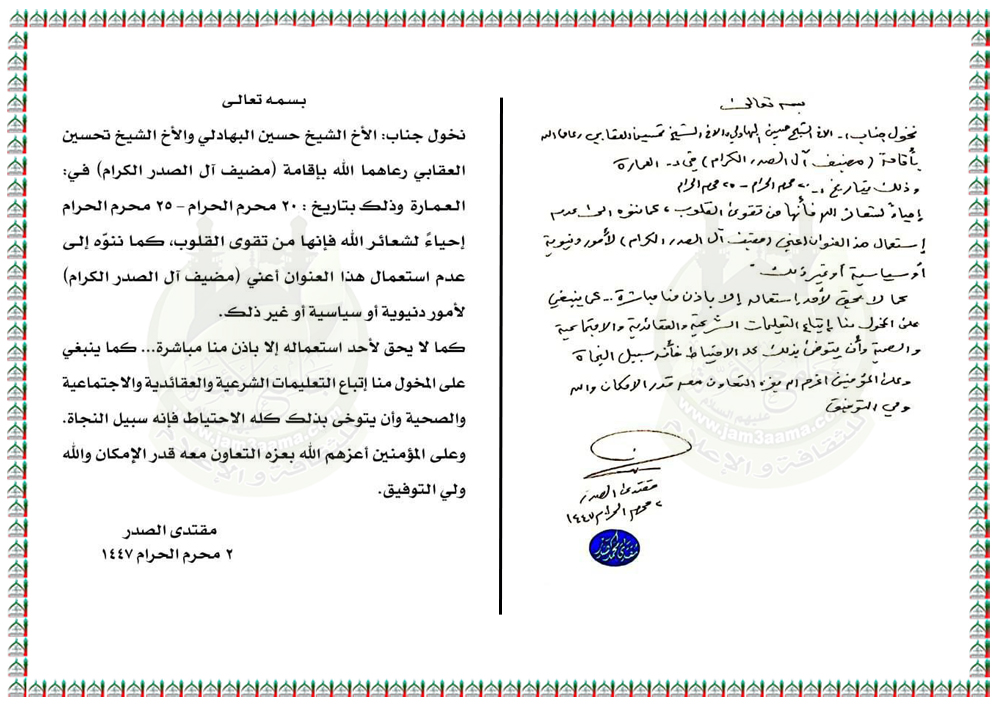 بسمه تعالى
نخول جناب: الأخ الشيخ حسين البهادلي والأخ الشيخ تحسين العقابي رعاهما الله
بأقامة (مضيف آل الصدر الكرام) في: العمارة
وذلك بتاريخ: ٢٠ محرم الحرام - ٢٥ محرم الحرام
إحياءً لشعائر الله فأنها من تقوى القلوب، كما ننوه الى عدم
إستعمال هذا العنوان أعني (مضيف آل الصدر الكرام) لأمور دنيوية
أو سياسية أو غير ذلك.
كما لا يحق لأحد استعماله إلا باذن منا مباشرة... كما ينبغي
على المخول منا إتباع التعليمات الشرعية والعقائدية والاجتماعية
والصحية وأن يتوخى بذلك كله الاحتياط فأنه سبيل النجاة
وعلى المؤمنين أعزهم الله بعزه التعاون معه قدر الإمكان والله
ولي التوفيق
مقتدى الصدر
٢ محرم الحرام ١٤٤٧
بسمه تعالى
نخول جناب: الأخ الشيخ حسين البهادلي والأخ الشيخ تحسين
العقابي رعاهما الله بإقامة (مضيف آل الصدر الكرام) في:
العمارة وذلك بتاريخ : ٢٠ محرم الحرام - ٢٥ محرم الحرام
إحياءً لشعائر الله فإنها من تقوى القلوب، كما ننوّه إلى
عدم استعمال هذا العنوان أعني (مضيف آل الصدر الكرام)
لأمور دنيوية أو سياسية أو غير ذلك.
كما لا يحق لأحد استعماله إلا باذن منا مباشرة... كما ينبغي
على المخول منا إتباع التعليمات الشرعية والعقائدية والاجتماعية
والصحية وأن يتوخى بذلك كله الاحتياط فإنه سبيل النجاة.
وعلى المؤمنين أعزهم الله بعزه التعاون معه قدر الإمكان والله
ولي التوفيق.
مقتدى الصدر
٢ محرم الحرام ١٤٤٧
www.jam3aama.com
للثقافة و الإعلام